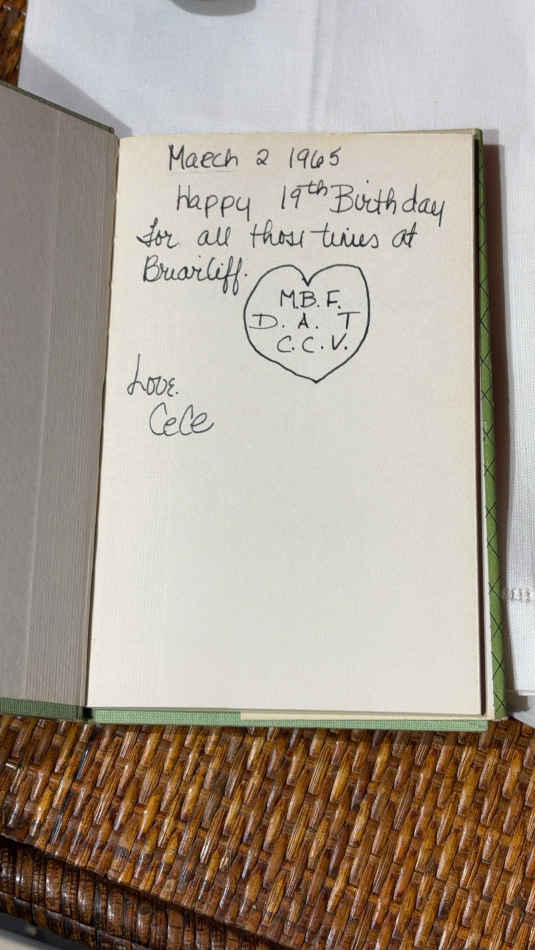 March 2 1965
Happy 19th Birthday
for all those times at
Briarcliff.
M.B.F.
D. A. T
C.C.V.
Love.
CeCe